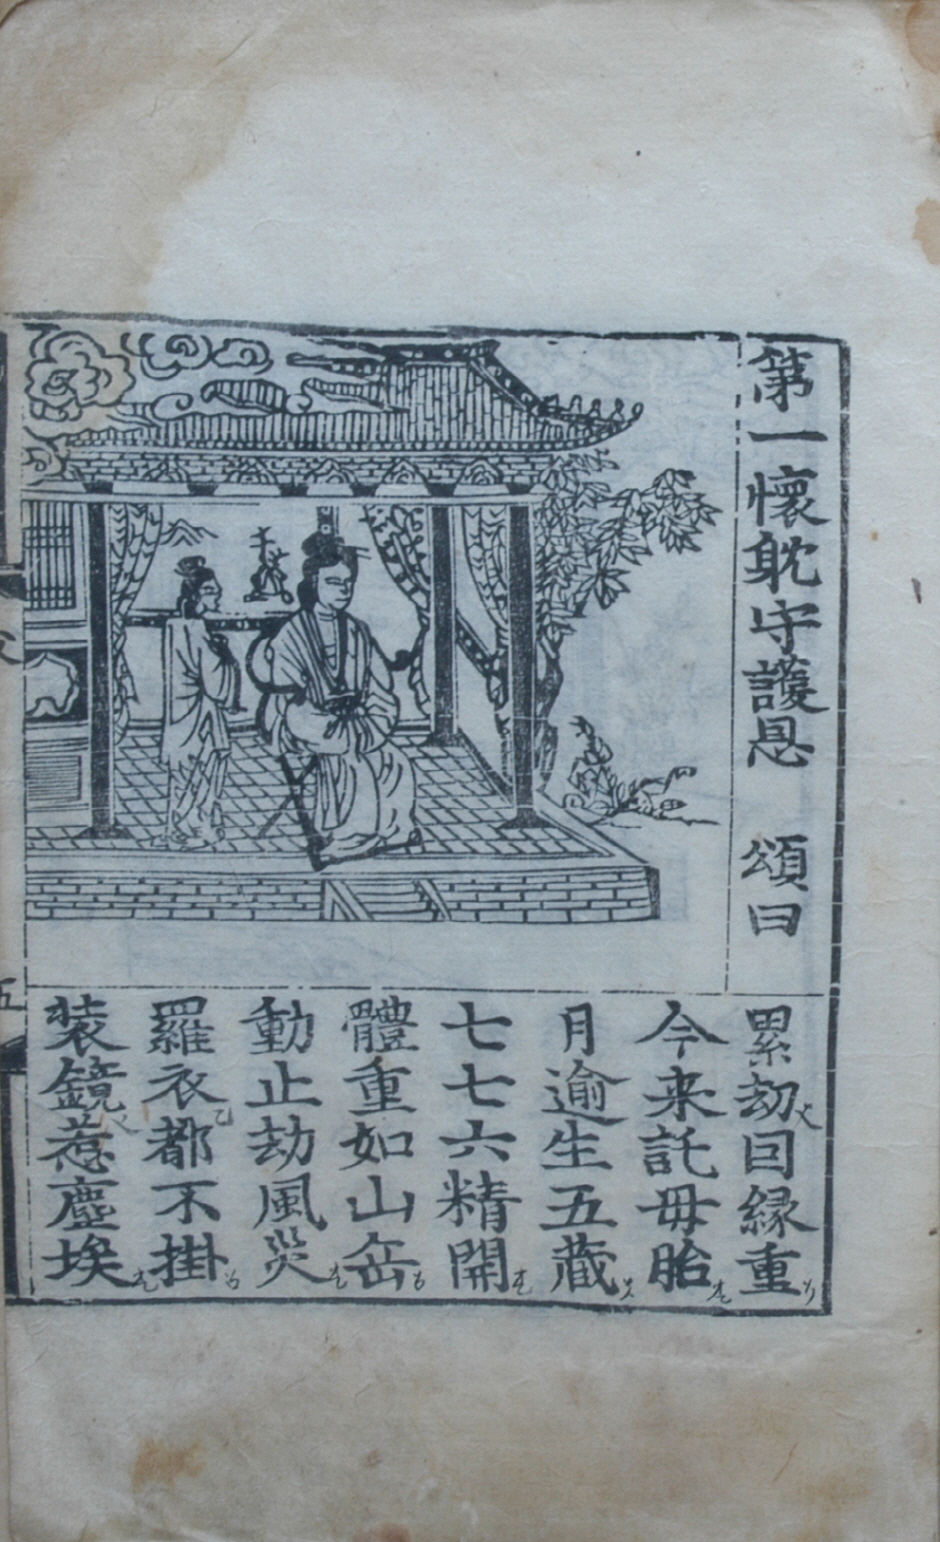 第一懷躭守護恩 頌曰
累刼回緣重
今来託母胎
月逾生五藏
七七六精開
體重如山岳
動止劫風灾
羅衣都不掛
裝鏡惹塵埃
五